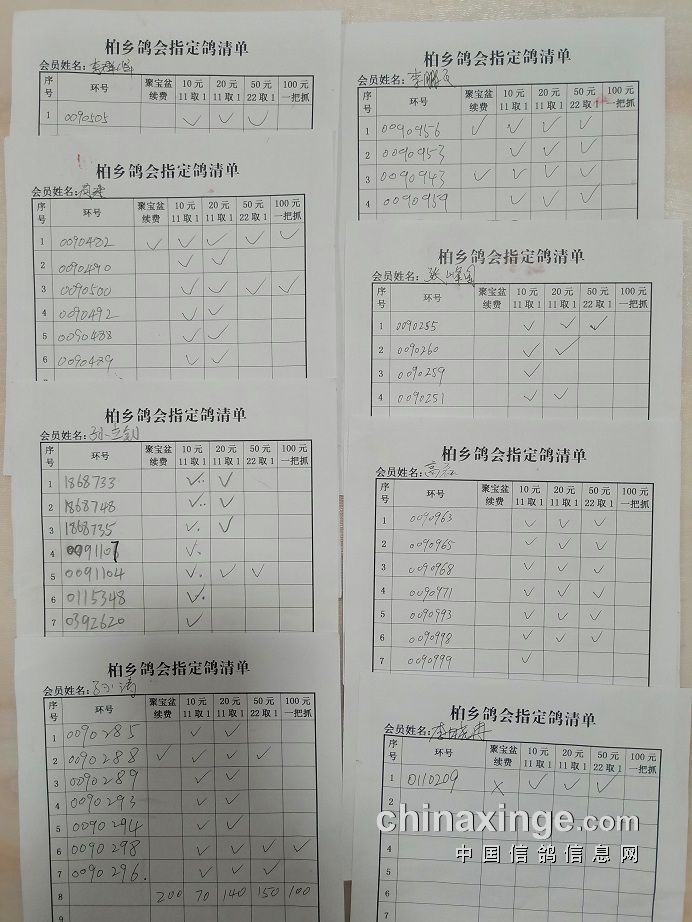 柏乡鸽会指定鸽清单
会员姓名：
序号 环号 聚宝盆续费 10元11取1 20元11取1 50元22取1 100元一把抓
1 0090505 ✓ ✓ ✓
柏乡鸽会指定鸽清单
会员姓名：
序号 环号 聚宝盆续费 10元11取1 20元11取1 50元22取1 100元一把抓
1 0090482 ✓ ✓ ✓ ✓ ✓
2 0090490 ✓ ✓
3 0090500 ✓ ✓ ✓ ✓
4 0090492 ✓ ✓
5 0090488 ✓ ✓
6 0090489 ✓ ✓
柏乡鸽会指定鸽清单
会员姓名：孙立钊
序号 环号 聚宝盆续费 10元11取1 20元11取1 50元22取1 100元一把抓
1 1868733 ✓ ✓
2 1868748 ✓ ✓
3 1868735 ✓ ✓
4 0091107 ✓
5 0091104 ✓ ✓ ✓
6 0115348 ✓
7 0392620 ✓
柏乡鸽会指定鸽清单
会员姓名：
序号 环号 聚宝盆续费 10元11取1 20元11取1 50元22取1 100元一把抓
1 0090285 ✓ ✓
2 0090288 ✓ ✓ ✓ ✓ ✓
3 0090289 ✓ ✓
4 0090293 ✓ ✓
5 0090294 ✓ ✓
6 0090298 ✓ ✓ ✓ ✓
7 0090296. ✓ ✓ ✓
8 200 70 140 150 100
9
柏乡鸽会指定鸽清单
会员姓名：李鹏飞
序号 环号 聚宝盆续费 10元11取1 20元11取1 50元22取1 100元一把抓
1 0090956 ✓ ✓ ✓ ✓
2 0090953 ✓ ✓ ✓
3 0090943 ✓ ✓ ✓ ✓
4 0090959 ✓ ✓ ✓
柏乡鸽会指定鸽清单
会员姓名：张峰国
序号 环号 聚宝盆续费 10元11取1 20元11取1 50元22取1 100元一把抓
1 0090255 ✓ ✓ ✓
2 0090260 ✓ ✓
3 0090259 ✓
4 0090251 ✓ ✓
柏乡鸽会指定鸽清单
会员姓名：高
序号 环号 聚宝盆续费 10元11取1 20元11取1 50元22取1 100元一把抓
1 0090963 ✓ ✓ ✓
2 0090965 ✓ ✓ ✓
3 0090968 ✓ ✓ ✓
4 0090971 ✓ ✓ ✓
5 0090993 ✓ ✓ ✓
6 0090998 ✓ ✓ ✓
7 0090999 ✓
柏乡鸽会指定鸽清单
会员姓名：李
序号 环号 聚宝盆续费 10元11取1 20元11取1 50元22取1 100元一把抓
1 0110209 × ✓ ✓ ✓
2
3
4
5
chinaxinge.com
中国信鸽信息网